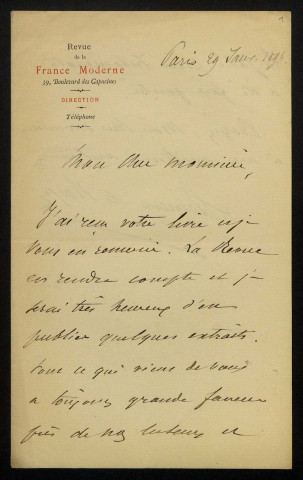 Revue
de la
France Moderne
39, Boulevard des Capucines
DIRECTION
Téléphone
Paris 29 Janv. 1896
Mon cher monsieur,
J'ai reçu votre livre et je
vous en remercie. La Revue
en rendra compte et je
serai très heureux d'en
publier quelques extraits.
Tout ce qui vient de vous
a toujours grande faveur
près de nos lecteurs et